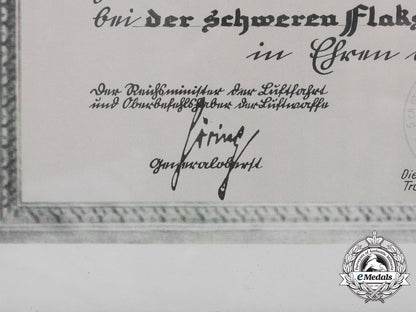 bei der schweren Flaks
in Ehren
Der Reichsminister der Luftfahrt
und Oberbefehlshaber der Luftwaffe
Göring
Generaloberst
Die
Tr
eMedals